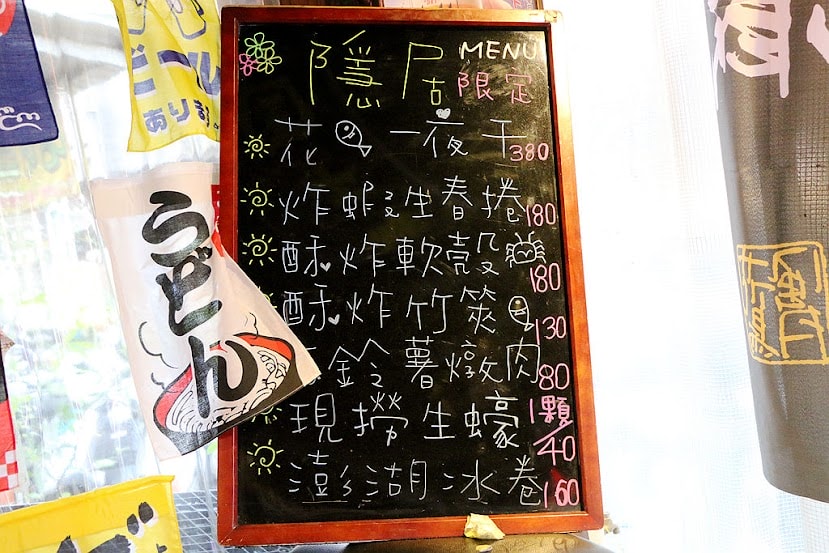 隱居 MENU
限定
花 一夜干 380
炸蝦生春捲 180
酥炸軟殼 180
酥炸竹筴 130
鈴薯燉肉 80
現撈生蠔 1顆/40
澎湖冰卷 160
うどん
ビール
あります